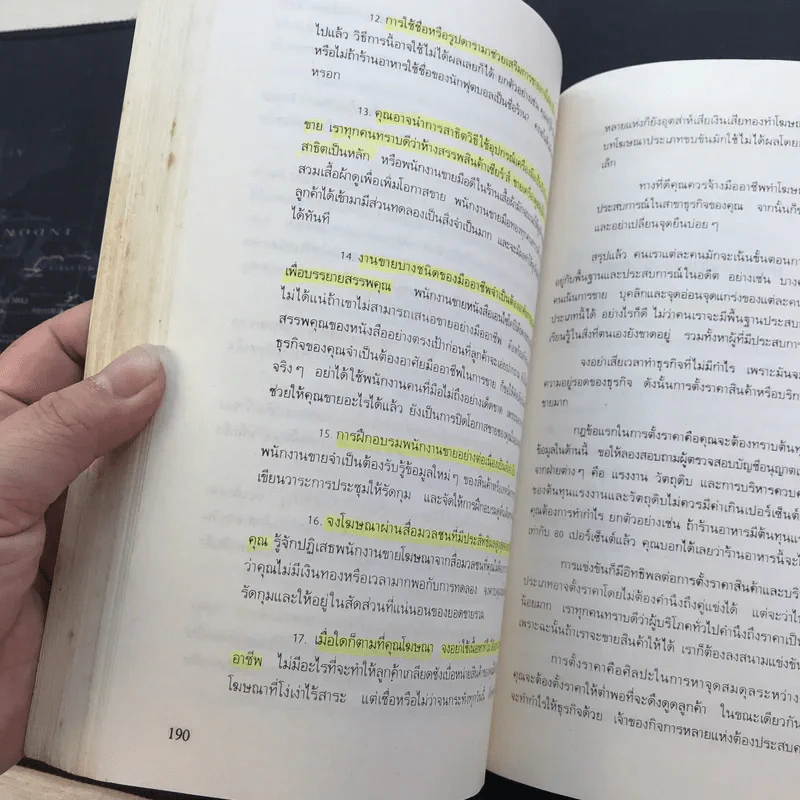 12. การใช้ชื่อหรือรูปดารามาช่วยเสริมการขาย
ไปแล้ว วิธีการนี้อาจใช้ไม่ได้ผลเลยก็ได้ ยกตัวอย่างเช่น
หรือไม่ถ้าร้านอาหารใช้ชื่อของนักฟุตบอลเป็นชื่อร้าน?
หรอก
13. คุณอาจนำการสาธิตวิธีใช้อุปกรณ์เครื่อง
ขาย เราทุกคนทราบดีว่าห้างสรรพสินค้าเซียร์ส์
สาธิตเป็นหลัก หรือพนักงานขายมือดีในร้านเสื้อผ้า
สวมเสื้อผ้าดูเพื่อเพิ่มโอกาสขาย พนักงานขายมือทอง
ลูกค้าได้เข้ามามีส่วนทดลองเป็นสิ่งจำเป็นมาก และจะ
ได้ทันที
14. งานขายบางชนิดของมืออาชีพจำเป็นต้อง
เพื่อบรรยายสรรพคุณ พนักงานขายหนังสือเอนไซ
ไม่ได้แน่ถ้าเขาไม่สามารถเสนอขายอย่างมืออาชีพ
สรรพคุณของหนังสืออย่างตรงเป้าก่อนที่ลูกค้าจะ
ธุรกิจของคุณจำเป็นต้องอาศัยมืออาชีพในการขาย
จริงๆ อย่าได้ใช้พนักงานคนที่มือไม่ถึงอย่างเด็ดขาด
ช่วยให้คุณขายอะไรได้แล้ว ยังเป็นการปิดโอกาสขายของ
15. การฝึกอบรมพนักงานขายอย่างต่อเนื่อง
พนักงานขายจำเป็นต้องรับรู้ข้อมูลใหม่ๆ ของสินค้า
เขียนวาระการประชุมให้รัดกุม และจัดให้การฝึกอบรม
16. จงโฆษณาผ่านสื่อมวลชนที่มีประสิทธิผล
คุณ รู้จักปฏิเสธพนักงานขายโฆษณาจากสื่อมวลชน
ว่าคุณไม่มีเงินทองหรือเวลามากพอกับการทดลอง
รัดกุมและให้อยู่ในสัดส่วนที่แน่นอนของยอดขายรวม
17. เมื่อใดก็ตามที่คุณโฆษณา จงอย่าใช้
อาชีพ ไม่มีอะไรที่จะทำให้ลูกค้าเกลียดชังเบื่อหน่ายสินค้า
โฆษณาที่โง่เง่าไร้สาระ แต่เชื่อหรือไม่ว่าจนกระทั่งทุกวันนี้
190
หลายแห่งก็ยังอุตส่าห์เสียเงินเสียทองทำโฆษณา
บทโฆษณาประเภทชบขันมักใช้ไม่ได้ผลโดย
เล็ก
ทางที่ดีคุณควรจ้างมืออาชีพทำโฆษณา
ประสบการณ์ในสาขาธุรกิจของคุณ จากนั้นก็
และอย่าเปลี่ยนจุดยืนบ่อยๆ
สรุปแล้ว คนเราแต่ละคนมักจะเน้นขั้นตอนการ
อยู่กับพื้นฐานและประสบการณ์ในอดีต อย่างเช่น บาง
คนเน้นการขาย บุคลิกและจุดอ่อนจุดแกร่งของแต่ละคน
ประเภทนี้ได้ อย่างไรก็ดี ไม่ว่าคนเราจะมีพื้นฐานประสบ
เรียนรู้ในสิ่งที่ตนเองยังขาดอยู่ รวมทั้งหาผู้ที่มีประสบการ
จงอย่าเสียเวลาทำธุรกิจที่ไม่มีกำไร เพราะมัน
ความอยู่รอดของธุรกิจ ดังนั้นการตั้งราคาสินค้าหรือบริก
ขายมาก
กฎข้อแรกในการตั้งราคาคือคุณจะต้องทราบต้น
ข้อมูลในด้านนี้ ขอให้ลองสอบถามผู้ตรวจสอบบัญชีอนุญาต
จากฝ่ายต่างๆ คือ แรงงาน วัตถุดิบ และการบริหารควบ
ของต้นทุนแรงงานและวัตถุดิบไม่ควรมีค่าเกินเปอร์เซ็นต์
การทำกำไร ยกตัวอย่างเช่น ถ้าร้านอาหารมีต้นทุน
เท่ากับ 80 เปอร์เซ็นต์แล้ว คุณบอกได้เลยว่าร้านอาหารนี้จะ
การแข่งขันก็มีอิทธิพลต่อการตั้งราคาสินค้าและบริ
ประเภทอาจตั้งราคาโดยไม่ต้องคำนึงถึงคู่แข่งได้ แต่จะว่า
น้อยมาก เราทุกคนทราบดีว่าผู้บริโภคทั่วไปคำนึงถึงราคาเป็น
เพราะฉะนั้นถ้าเราจะขายสินค้าให้ได้ เราก็ต้องลงสนามแข่ง
การตั้งราคาคือศิลปะในการหาจุดสมดุลระหว่าง
คุณจะต้องตั้งราคาให้ต่ำพอที่จะดึงดูดลูกค้า ในขณะเดียวกัน
จะทำกำไรให้ธุรกิจด้วย เจ้าของกิจการหลายแห่งต้องประสบ